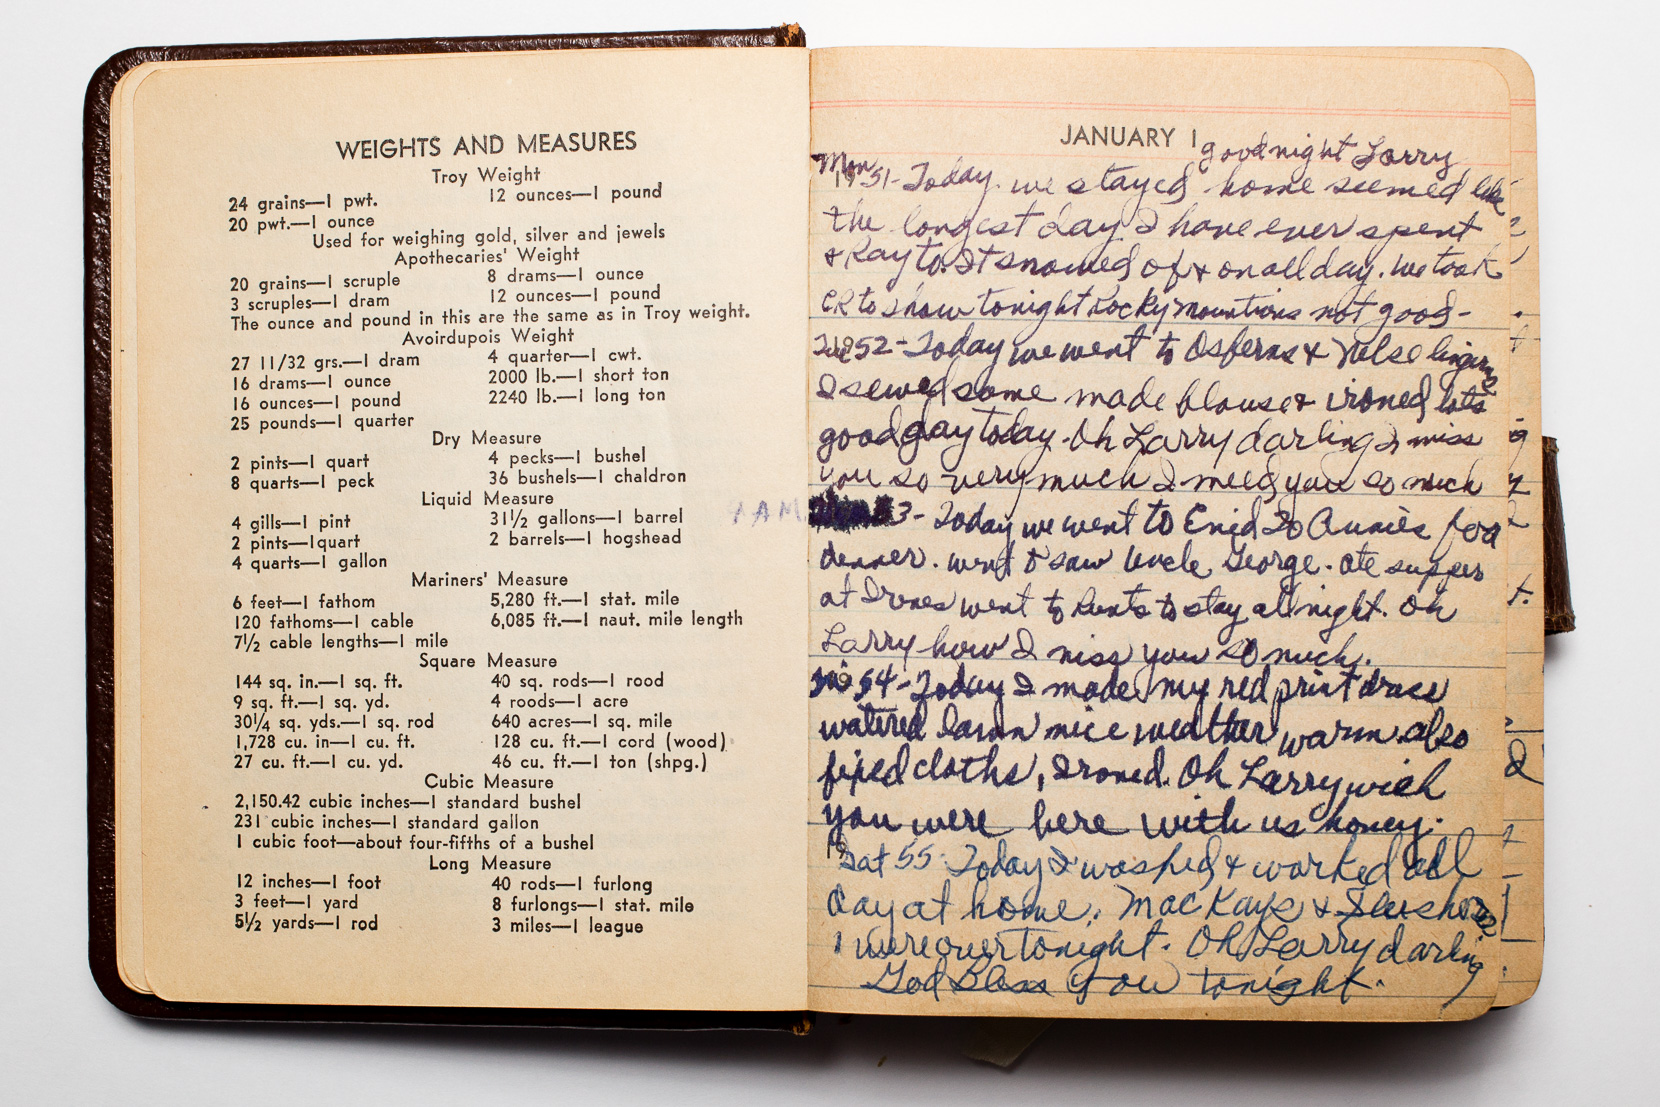 WEIGHTS AND MEASURES
Troy Weight
24 grains—1 pwt. 12 ounces—1 pound
20 pwt.—1 ounce
Used for weighing gold, silver and jewels
Apothecaries' Weight
20 grains—1 scruple 8 drams—1 ounce
3 scruples—1 dram 12 ounces—1 pound
The ounce and pound in this are the same as in Troy weight.
Avoirdupois Weight
27 11/32 grs.—1 dram 4 quarter—1 cwt.
16 drams—1 ounce 2000 lb.—1 short ton
16 ounces—1 pound 2240 lb.—1 long ton
25 pounds—1 quarter
Dry Measure
2 pints—1 quart 4 pecks—1 bushel
8 quarts—1 peck 36 bushels—1 chaldron
Liquid Measure
4 gills—1 pint 31½ gallons—1 barrel
2 pints—1quart 2 barrels—1 hogshead
4 quarts—1 gallon
Mariners' Measure
6 feet—1 fathom 5,280 ft.—1 stat. mile
120 fathoms—1 cable 6,085 ft.—1 naut. mile length
7½ cable lengths—1 mile
Square Measure
144 sq. in.—1 sq. ft. 40 sq. rods—1 rood
9 sq. ft.—1 sq. yd. 4 roods—1 acre
30¼ sq. yds.—1 sq. rod 640 acres—1 sq. mile
1,728 cu. in—1 cu. ft. 128 cu. ft.—1 cord (wood)
27 cu. ft.—1 cu. yd. 46 cu. ft.—1 ton (shpg.)
Cubic Measure
2,150.42 cubic inches—1 standard bushel
231 cubic inches—1 standard gallon
1 cubic foot—about four-fifths of a bushel
Long Measure
12 inches—1 foot 40 rods—1 furlong
3 feet—1 yard 8 furlongs—1 stat. mile
5½ yards—1 rod 3 miles—1 league
JANUARY 1 goodnight Larry
Mon 1951- Today we stayed home seemed like
the longest day I have ever spent
& Ray to. It snowed of & on all day. we took
CR to show tonight Rocky mountains not good-
1952- Today we went to &
I sewed some made blouse & ironed lots
good day today. Oh Larry darling I miss
you so very much I need you so much
4 AM. 3- Today we went to Enid to Annies for
denner. went to saw Uncle George. ate supper
at Irenes went to to stay all night. Oh
Larry how I miss you so much.
1954- Today I made my red print dress
watered lawn nice weather warm. also
fixed cloths, Ironed. Oh Larry wish
you were here with us honey.
19 Sat 55- Today I washed & worked all
day at home. MacKays &
were over tonight. Oh Larry darling
God Bless you tonight.